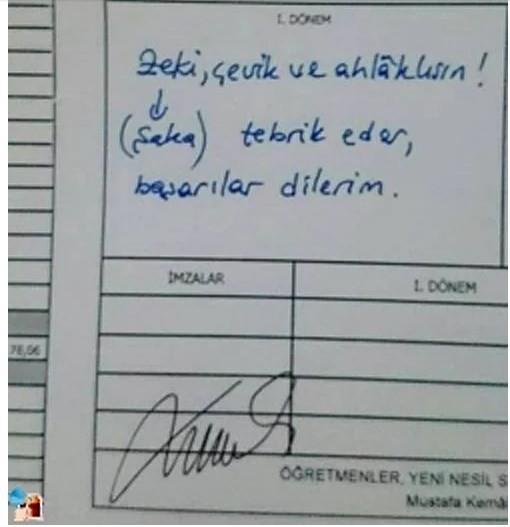 I. DÖNEM
Zeki, çevik ve ahlâklısın!
(Şaka) tebrik eder,
başarılar dilerim.
İMZALAR
I. DÖNEM
78,06
ÖĞRETMENLER, YENİ NESİL S
Mustafa Kemâ